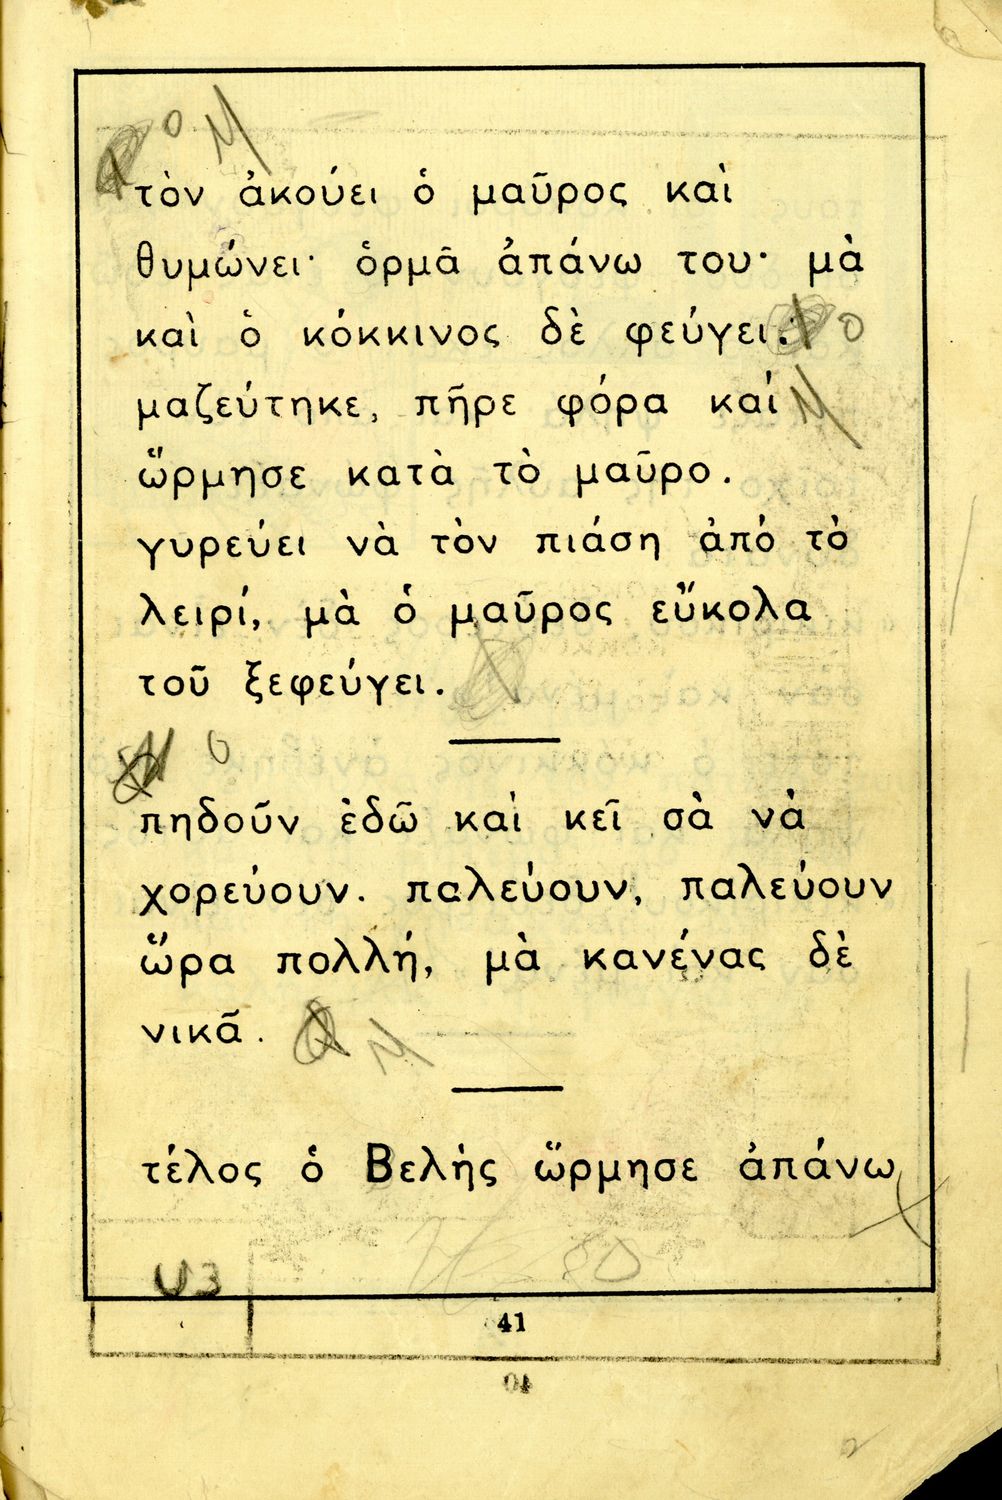 τὸν ἀκούει ὁ μαῦρος καὶ
θυμώνει· ὁρμᾶ ἀπάνω του· μὰ
καὶ ὁ κόκκινος δὲ φεύγει.
μαζεύτηκε, πῆρε φόρα καὶ
ὥρμησε κατὰ τὸ μαῦρο.
γυρεύει νὰ τὸν πιάση ἀπό τὸ
λειρί, μὰ ὁ μαῦρος εὔκολα
τοῦ ξεφεύγει.
πηδοῦν ἐδῶ καὶ κεῖ σὰ νὰ
χορεύουν. παλεύουν, παλεύουν
ὥρα πολλή, μὰ κανένας δὲ
νικᾶ.
τέλος ὁ Βελής ὥρμησε ἀπάνω
41